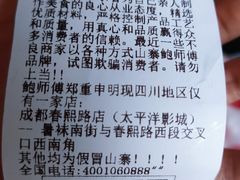 作美食的良心业态度，精选
优质材料，严格控制产品工艺
和质量，用真心和品质赢得
多消费者的信赖。最近一些不
良商家以各种方式山寨鲍师傅
品牌，试图欺骗消费者。请勿
上当！！
鲍师傅郑重申明现四川地区仅
有一家店：
成都春熙路店（太平洋影城）
--暑袜南街与春熙路西段交叉
口西南角
其他均为假冒山寨！！！
全国电话:4001060888